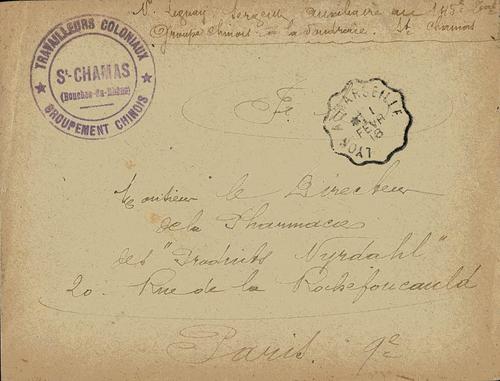 Nr Leguay Sergent auxiliaire au 145e Terl
Groupe Chinois à la Poudrerie. St Chamas
TRAVAILLEURS COLONIAUX
St-CHAMAS
(Bouches-du-Rhône)
GROUPEMENT CHINOIS
F.
LYON A MARSEILLE
1
FEVR
18
Monsieur le Directeur
de la Pharmacie
des "Produits Nyrdahl"
20. Rue de la Rochefoucauld
Paris. 9e